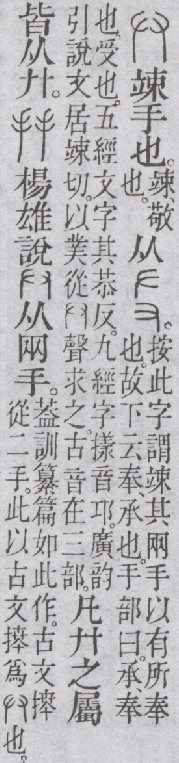 𠬞竦手也。竦、敬也。从𠂇又。按此字謂竦其兩手以有所奉也。故下云奉、承也。手部曰。承奉
也。受也。五經文字其恭反。九經字樣音邛。廣韵引說文居竦切。以菐從𠬞聲求之。古音在三部。凡廾之屬
皆从廾。𢪒楊雄說𠬞从兩手。葢訓纂篇如此作。古文𢷎從二手。此以古文𢷎爲𠬞也。